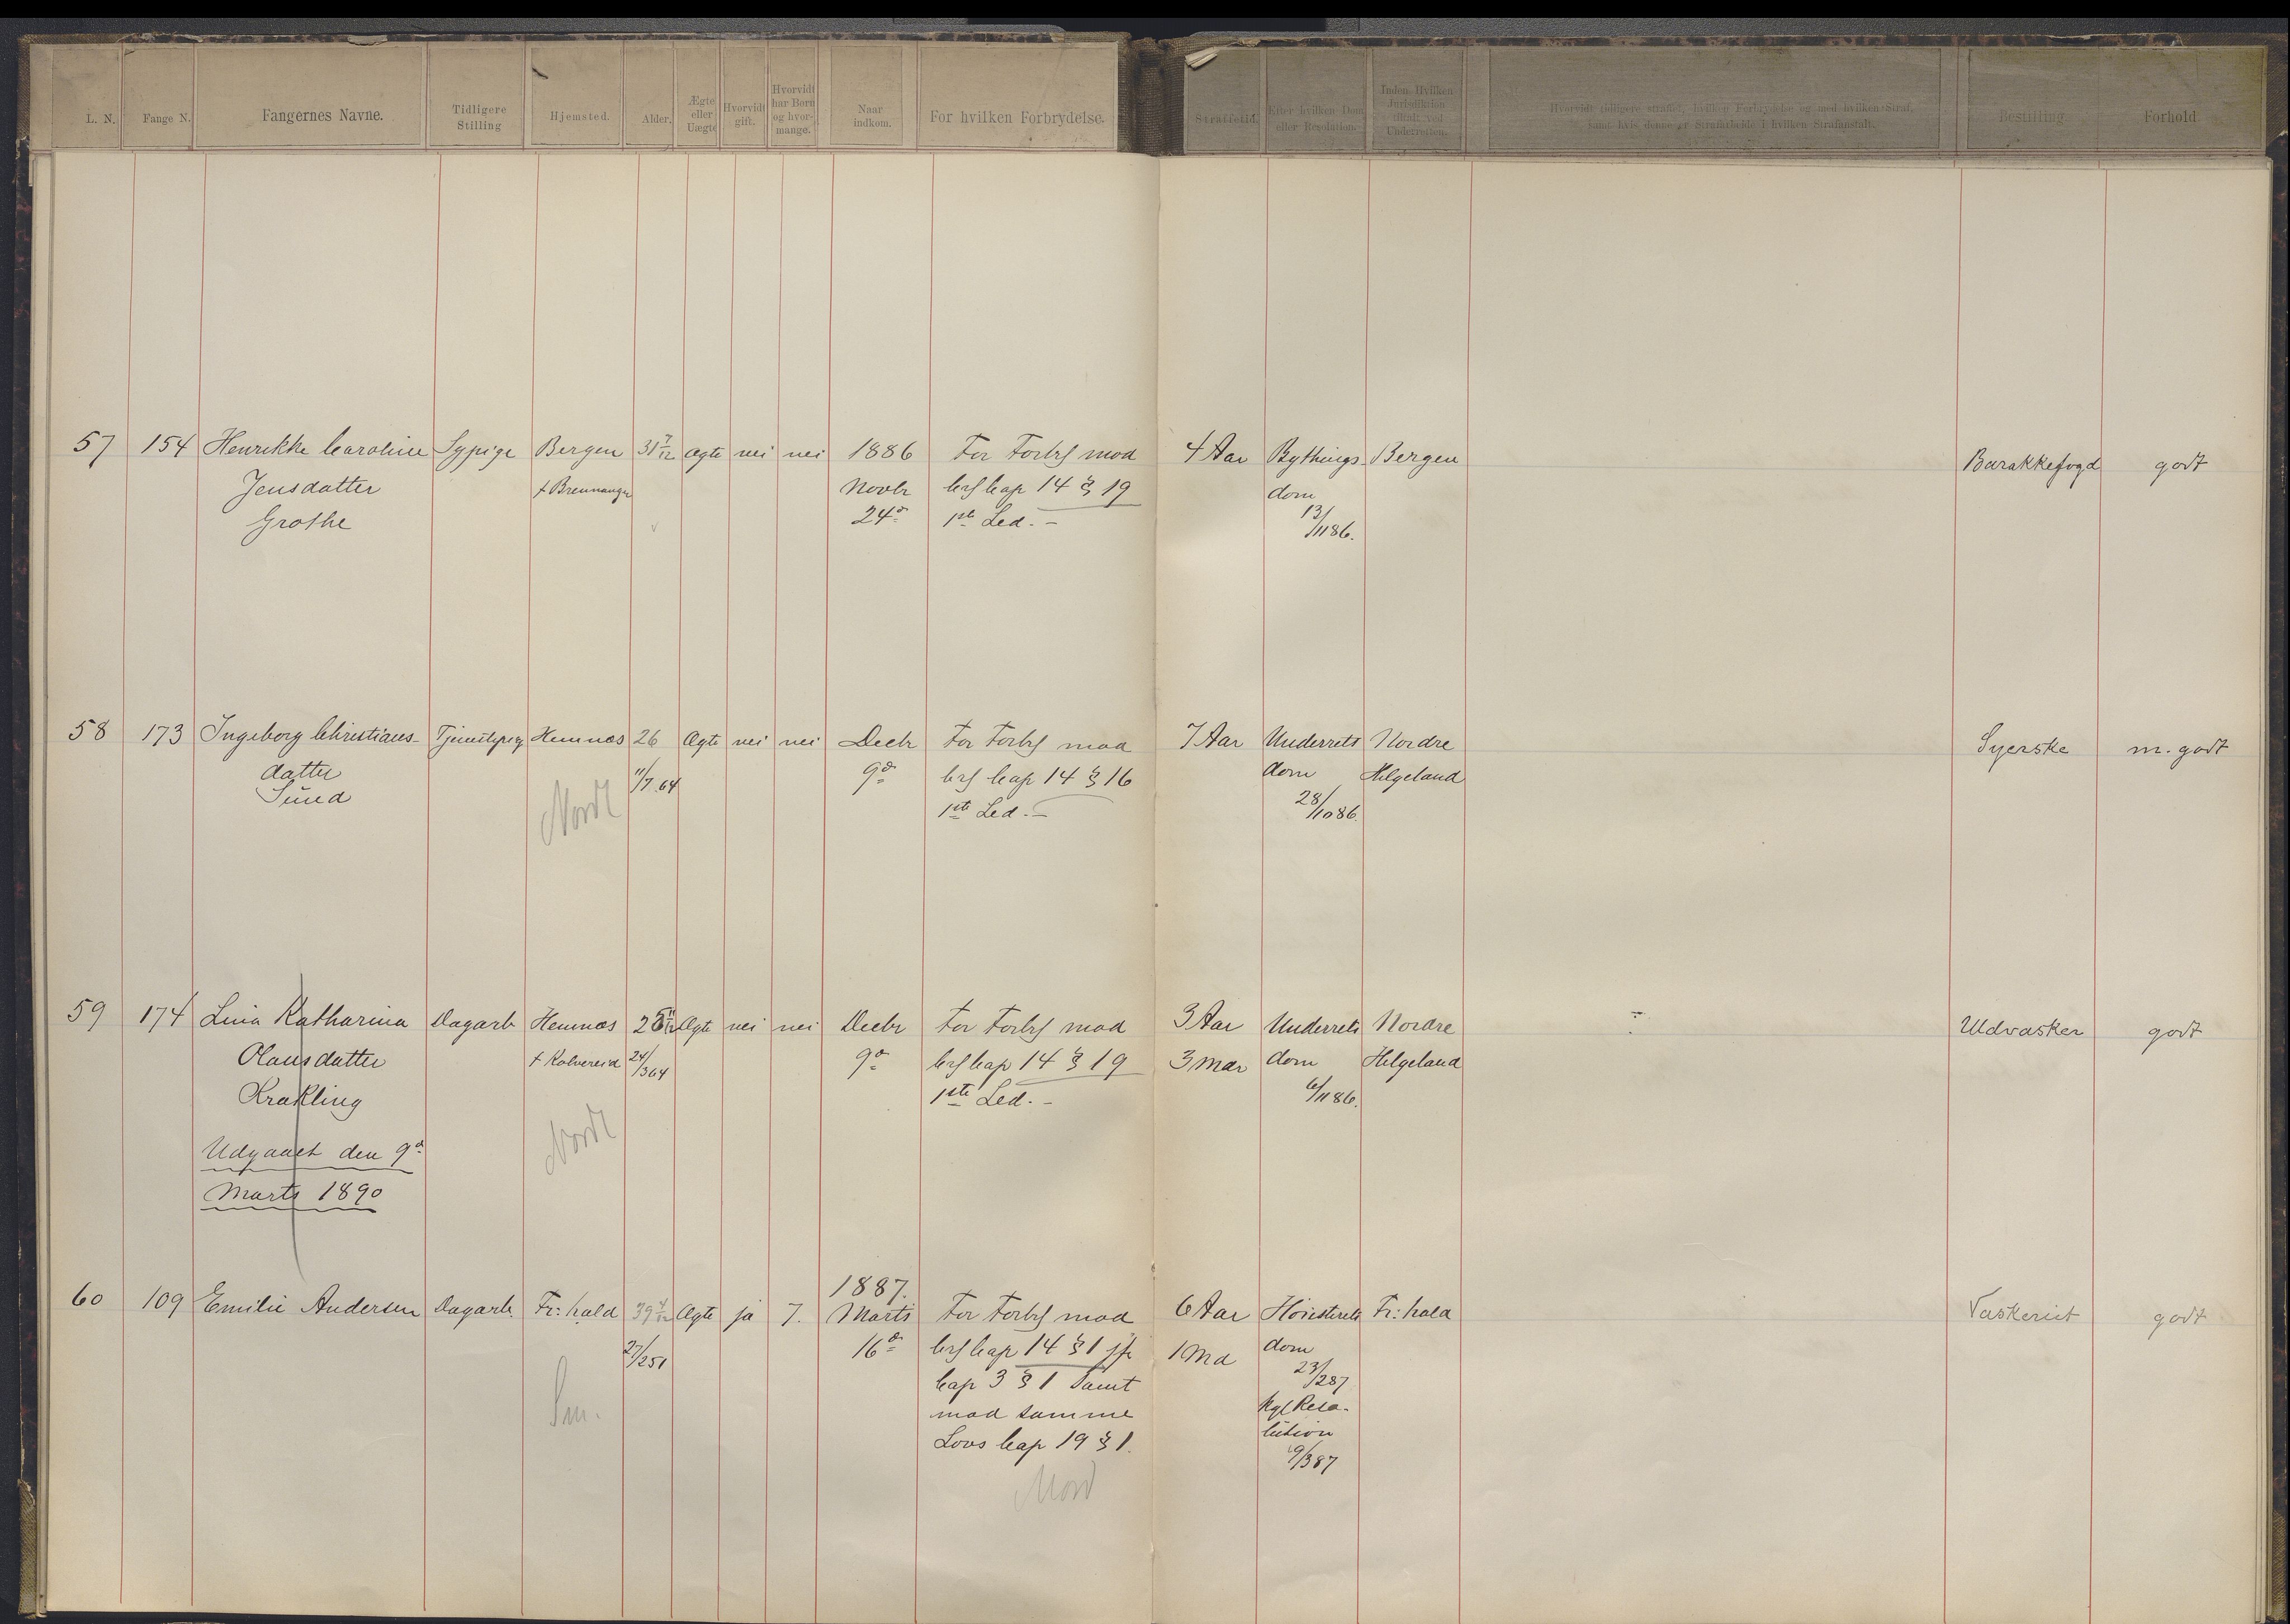 L. N. Fange N. Fangernes Navne. Tidligere Stilling Hjemsted. Alder. Ægte eller Uægte Hvorvidt gift. Hvorvidt har Børn og hvor- mange. Naar indkom. For hvilken Forbrydelse. Straffetid. Efter hvilken Dom eller Resolution. Inden Hvilken Jurisdiktion tiltalt ved Underretten. Hvorvidt tidligere straffet, hvilken Forbrydelse og med hvilken Straf, samt hvis denne er Strafarbeide i hvilken Strafanstalt. Bestilling Forhold
57 154 Henrikke Caroline Sypige Bergen 31 7/12 Ægte nei nei 1886 For Forbr mod 4 Aar Bythings Bergen Barakkefogd godt
Jensdatter Novbr Crl Cap 14 § 19 dom
Grothe 24de 1ste Led. - 13/11 86.
58 173 Ingeborg Christians- Hemnæs 26 Ægte nei nei Decbr For Forbr mod 7 Aar Underrets Nordre Syerske m. godt
datter 11/7 64 9de Crl Cap 14 § 16 dom Helgeland
Sund Nordl 1ste Led. - 28/10 86.
59 174 Lina Katharina Dagarb Hemnæs Ægte nei nei Decbr For Forbr mod 3 Aar Underrets Nordre Udvasker godt
Olausdatter + Kolvereid 24/3 64 9de Crl Cap 14 § 19 3 Mdr dom Helgeland
Krakling Nordl 1ste Led. - 6/11 86.
Udgaaet den 9de
Marts 1890
60 109 Emilie Andersen Dagarb. Fr: hald 39 4/12 Ægte ja 7. 1887. Marts For Forbr mod 6 Aar Høiesterets Fr: hald Vaskeriet godt
27/2 51 16de Crl Cap 14 § 1 jfr 1 Md dom
Cap 3 § 1 samt 23/2 87
mod samme Kgl Reso-
Lovs Cap 19 § 1. lution
Mord 9/3 87